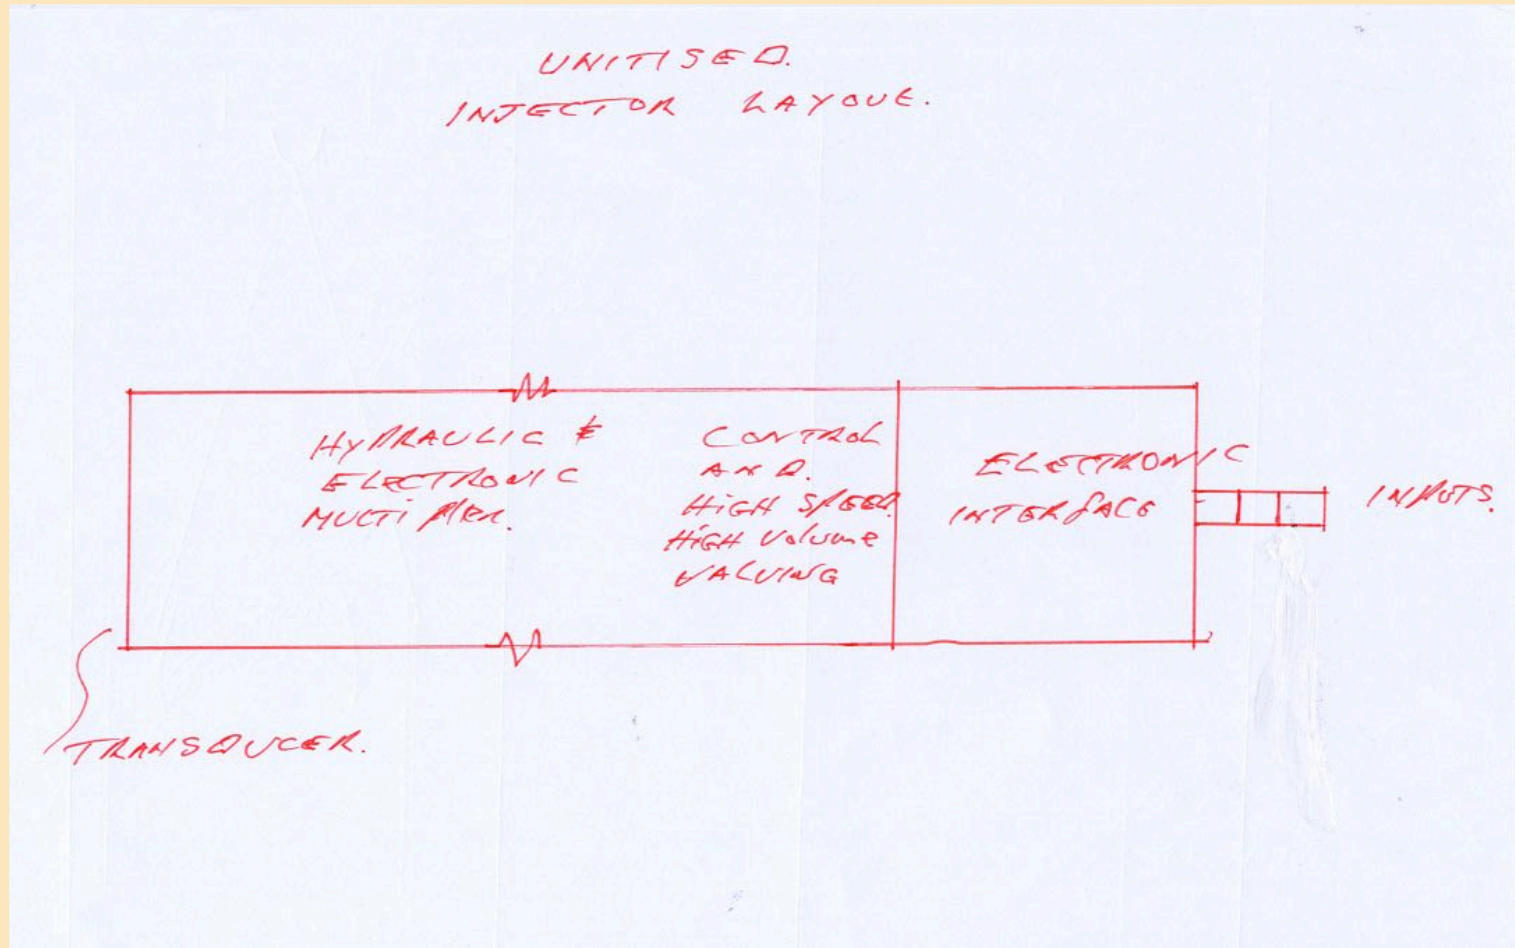 UNITISED.
INJECTOR LAYOUT.
HYDRAULIC &
ELECTRONIC
MULTIPLIER.
CONTROL
AND.
HIGH SPEED.
HIGH VOLUME
VALVING
ELECTRONIC
INTERFACE
INPUTS.
TRANSDUCER.